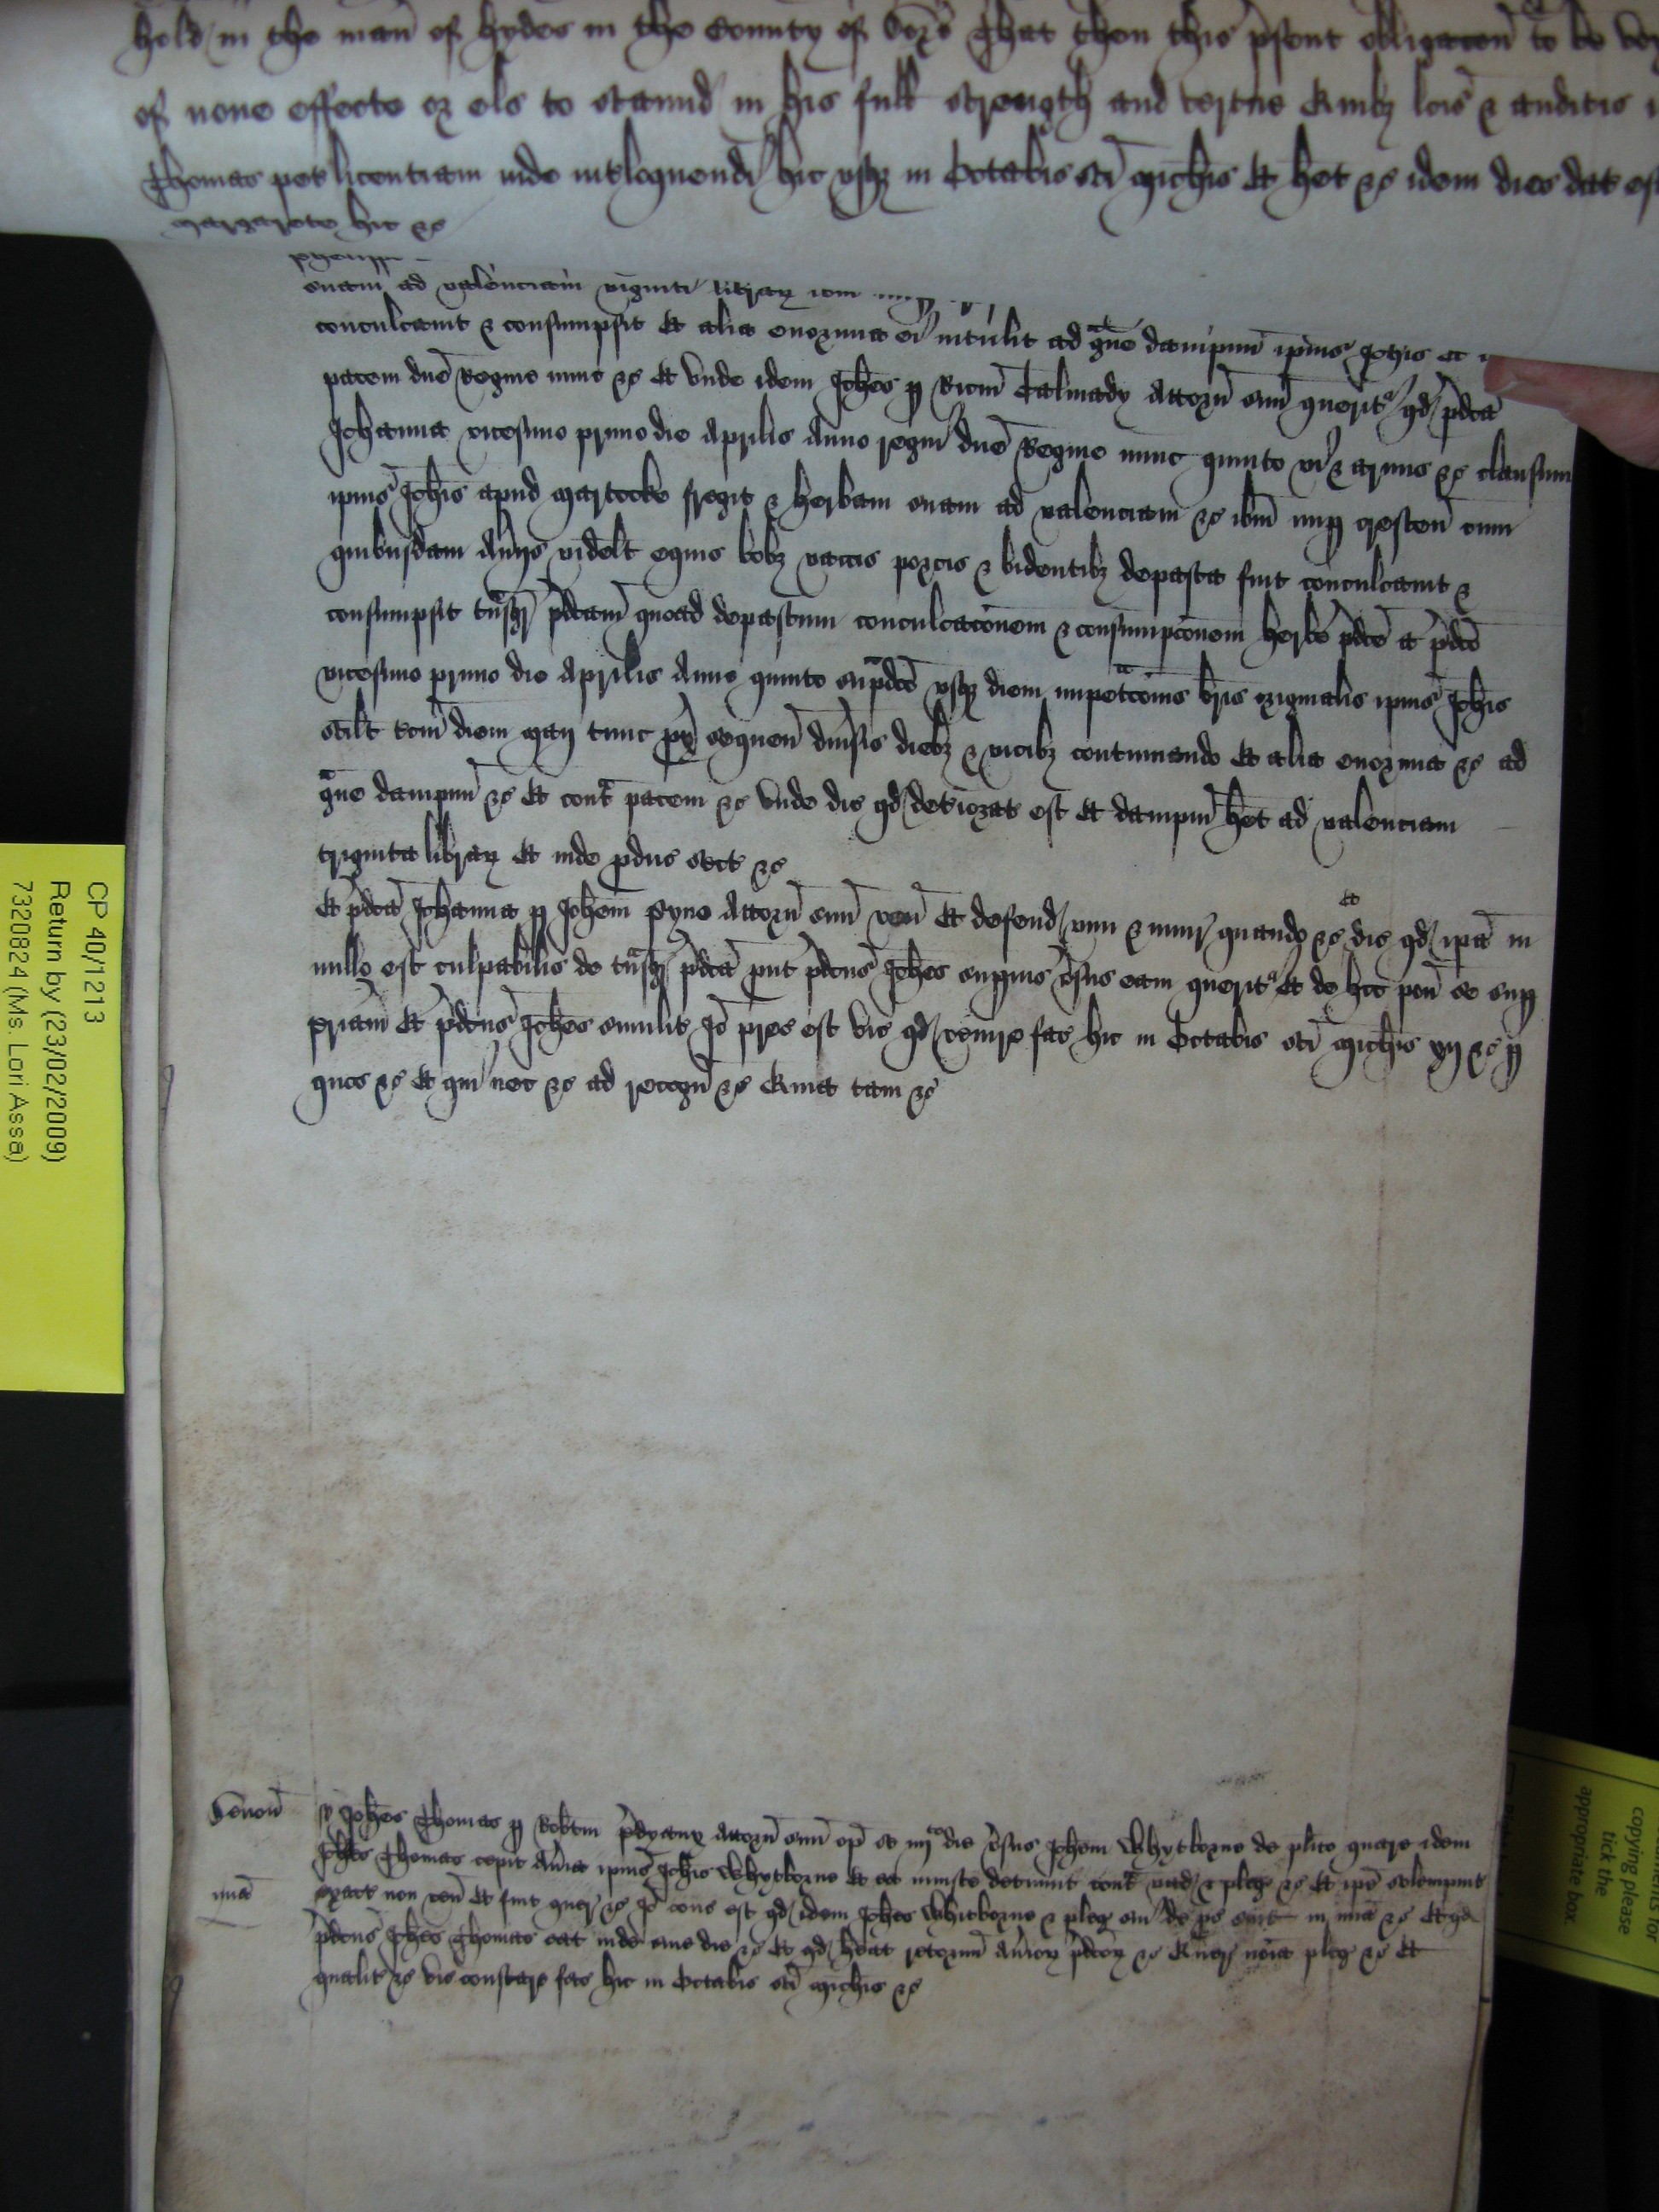 hold in the man of hydes in the County of Dors That then this psent obligacon to be voy
of none effecte or els to stannd in his full strength and vertue Quibz lcis & auditis
Thomas pet licentiam inde intloquendi hic usqz in Octabis sci Michis Et het &c idem dies dat est
Margarete hic &c
suam ad valenciam viginti librar
conculcavit & consumpsit Et alia enormia ei intulit ad gve dampnum ipius Johis et
pacem dne Regine nunc &c Et unde idem Johes p Ricm Talmady Attorn suu querit qd pdca
Johanna vicesimo primo die Aprilis Anno regni dne Regine nunc quinto vi & armis &c clausum
ipius Johis apud Martocke fregit & herbam suam ad valenciam &c ibm nup crescen cum
quibusdam Aviis videlt equis bobz vaccis porcis & bidentibz depasta fuit conculcavit &
consumpsit tnsgr pdcam quoad depastum conculcaconem & consumpconem herbe pdce a pdco
vicesimo primo die Aprilis Anno quinto supdco usqz diem impetracois bris originalis ipius Johis
scilt diem Maij tunc px sequen divsis diebz & vicibz continuando Et alia enormia &c ad
gve dampnu &c Et cont pacem &c Unde dic qd detiorat est Et dampnu het ad valenciam
triginta librar Et inde pduc sect &c
Et pdca Johanna p Johem Pyne Attorn suu ven Et defend vim & iniur quando &c Et dic qd ipa in
nullo est culpabilis de tnsgr pdca put pdcus Johes supius vsus eam querit Et de hoc pon se sup
priam Et pdcus Johes similit Io prec est vic qd venire fac hic in Octabis sci Michis xij &c p
quos &c Et qui nec &c ad recogn &c Quia tam &c
Devon
Johes Thomas p Robtm Attorn suu op se iiij to die vsus Johem Whytborne de plito quare idem
Johes Thomas cepit Avia ipius Johis Whytborne Et ea iniuste detinuit cont vad & pleg &c Et ipe solempnit
mia
exact non ven Et fuit quer &c Io cons est qd idem Johes Whitborne & pleg sui de ps sint in mia &c Et qd
pdcus Johes Thomas eat inde sine die &c Et qd heat retornu Avior pdcor &c Quer noia pleg &c Et
qualit &c vic constare fac hic in Octabis sci Michis &c
CP 40/1213
Return by (23/02/2009)
7320824 (Ms. Lori Assa)
copying please
tick the
appropriate box.